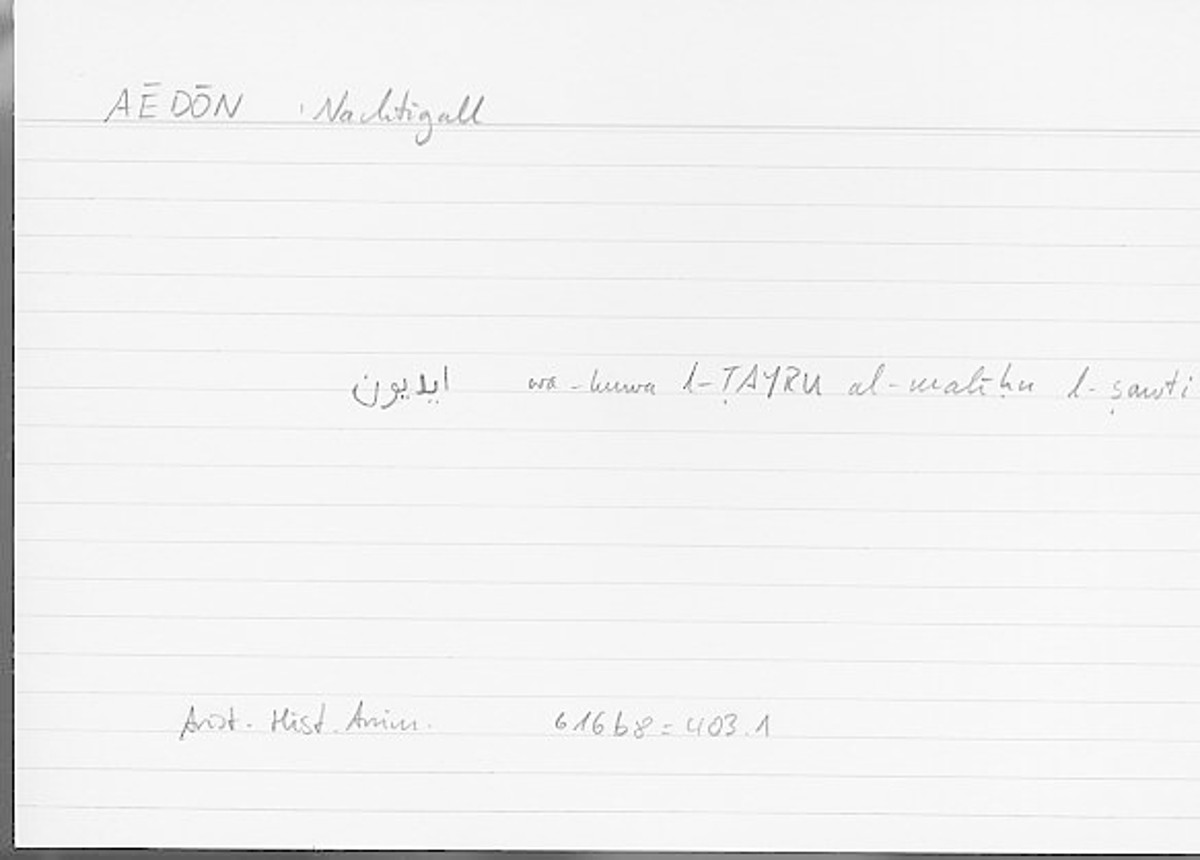 AĒDŌN 'Nachtigall
ايديون wa-huwa l-ṬAYRU al-malīḥu l-ṣawti
Arist. Hist. Anim. 616b8 = 403.1